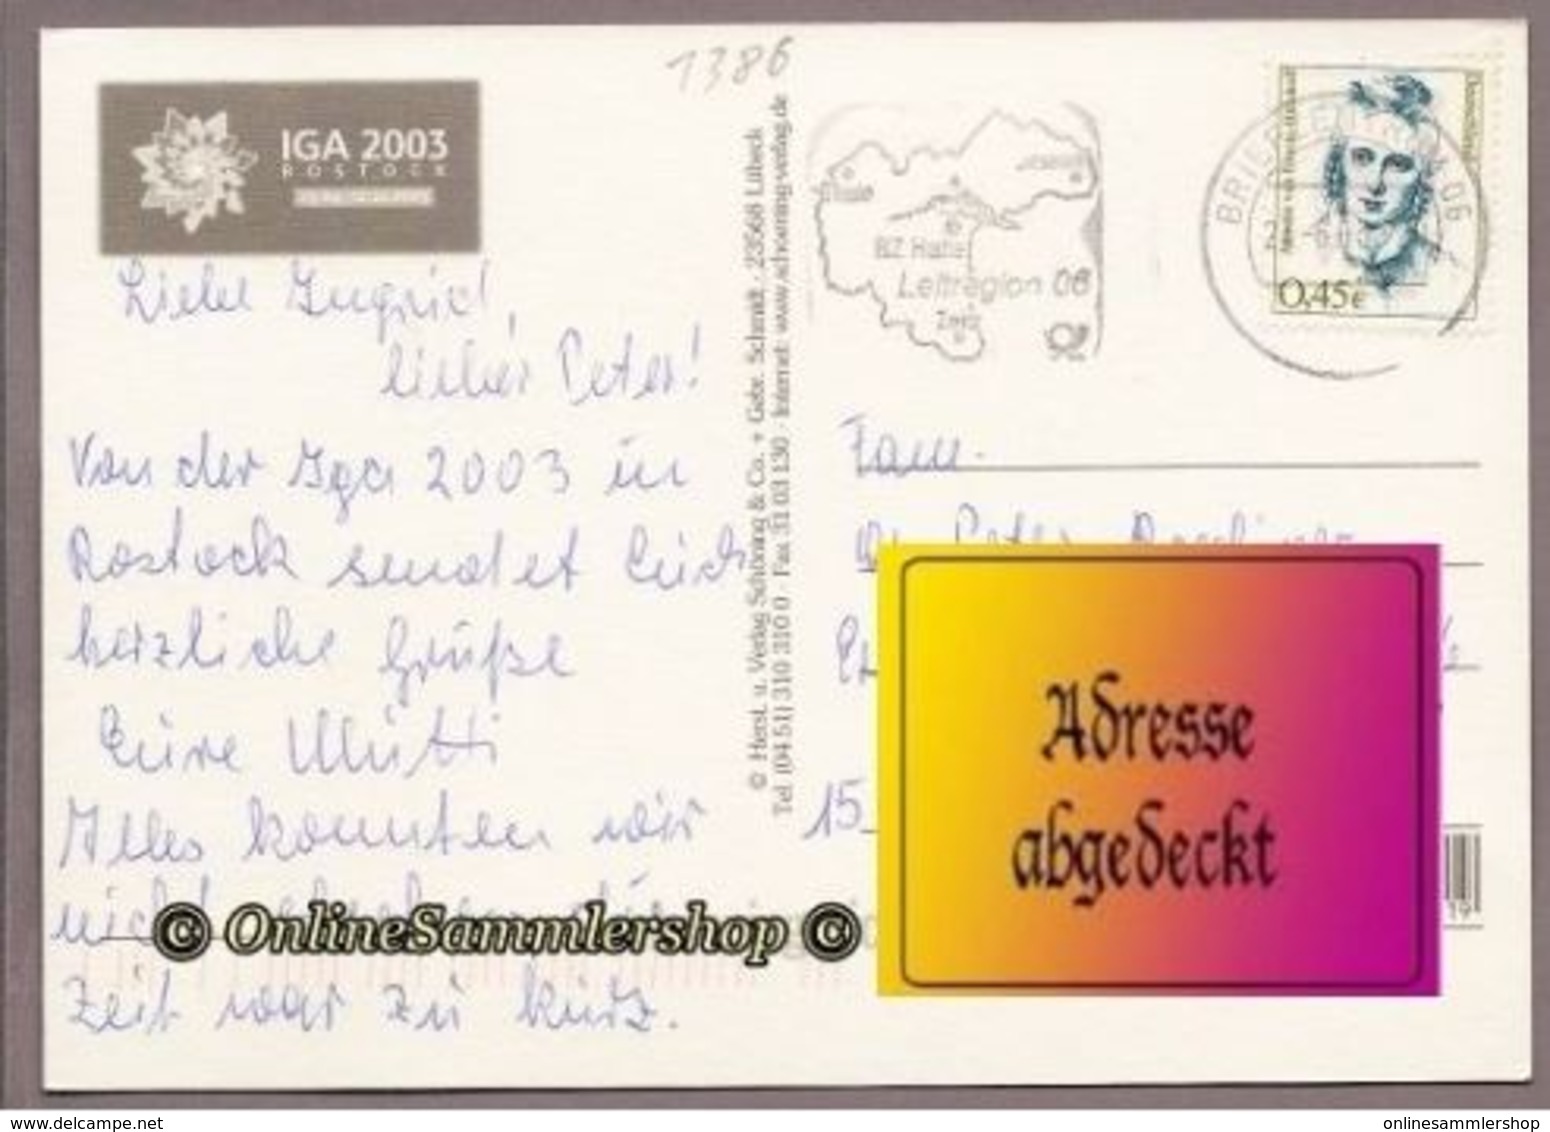 1386
IGA 2003
ROSTOCK
Liebe Ingrid,
lieber Peter!
Von der Iga 2003 in
Rostock sendet Euch
herzliche Grüße
Eure Mutti
Alles konnten wir
nicht
Zeit war zu kurz.
© Herst. u. Verlag Schöning & Co. + Gebr. Schmidt · 23568 Lübeck
Tel. (04 51) 310 310 0 · Fax 31 03 130 · Internet: www.schoening-verlag.de
BZ Halle
Leitregion 06
Zeitz
BRIEFZENTRUM 06
Deutschland
0,45 €
Fam.
Dr. Peter
15
Adresse
abgedeckt
© OnlineSammlershop ©
www.delcampe.net
onlinesammlershop